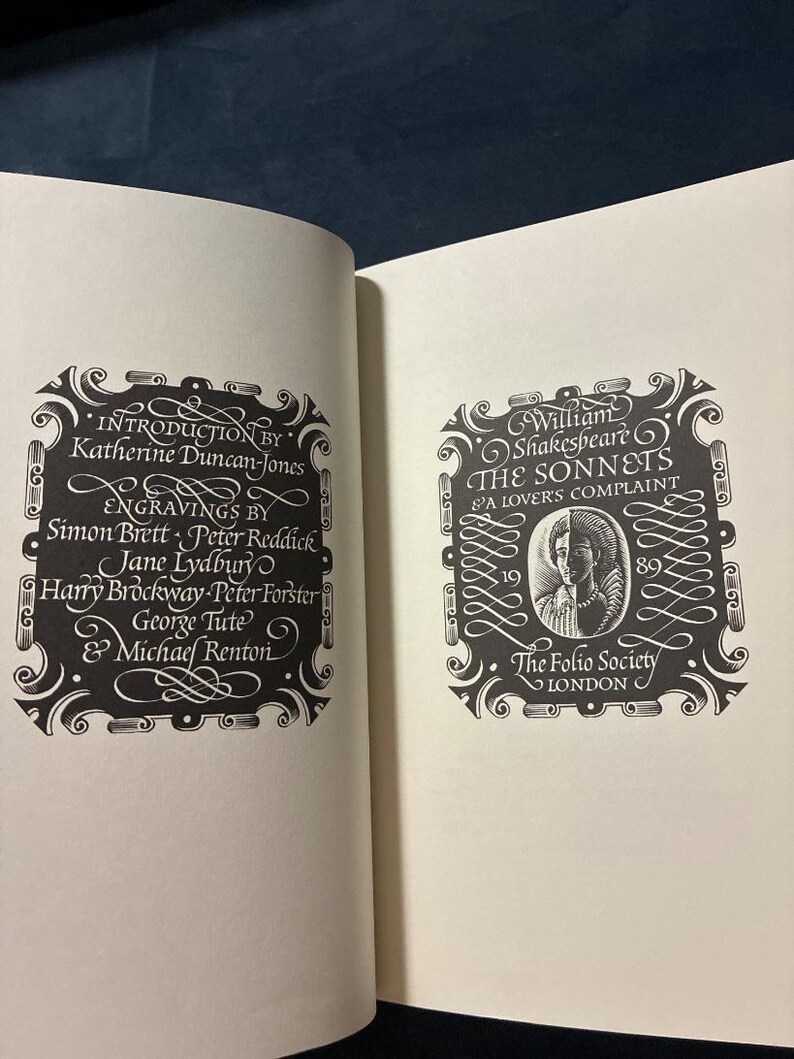 INTRODUCTION BY
Katherine Duncan-Jones
ENGRAVINGS BY
Simon Brett · Peter Reddick
Jane Lydbury
Harry Brockway · Peter Forster
George Tute
& Michael Renton
William
Shakespeare
THE SONNETS
& A LOVER'S COMPLAINT
19 89
The Folio Society
LONDON